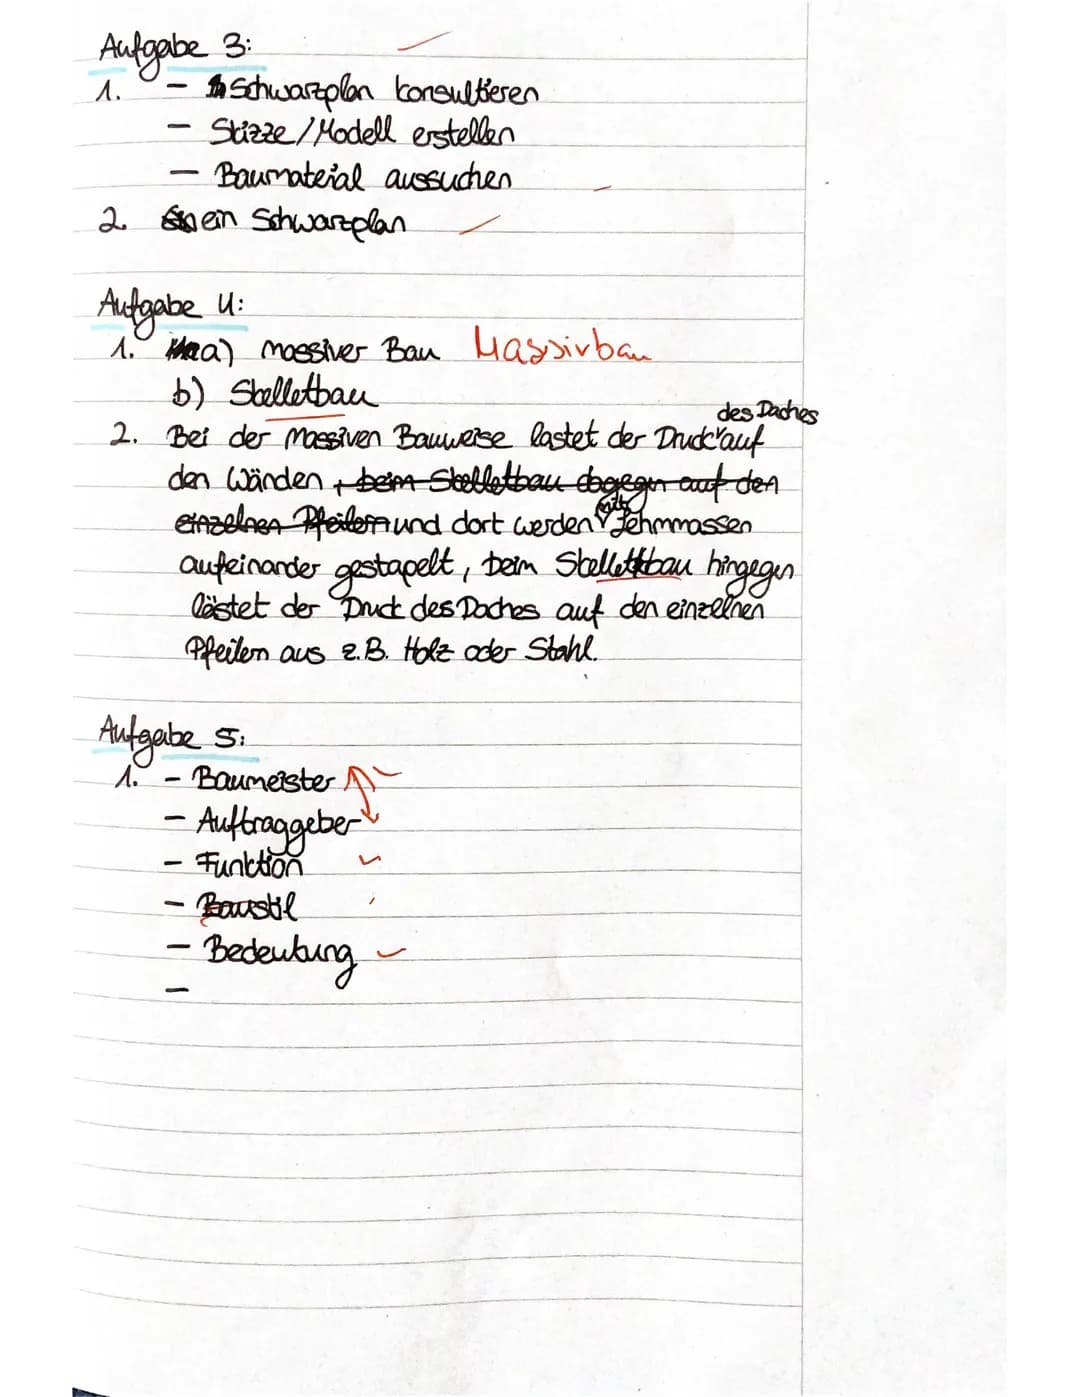 Aufgabe 3:
1. - Schwarzplan konsultieren
- Skizze/Modell erstellen
- Baumateial aussuchen
2. ein Schwarzplan
Aufgabe 4:
1. a) massiver Bau Massivbau
b) Skelletbau
des Daches
2. Bei der massiven Bauweise lastet der Druck auf
den Wänden, beim Skelletbau dagegen auf den
einzelnen Pfeilern und dort werden Lehmmassen
aufeinander gestapelt, beim Skelletbau hingegen
lastet der Druck des Daches auf den einzelnen
Pfeilern aus z.B. Holz oder Stahl.
Aufgabe 5:
1. - Baumeister
- Auftraggeber
- Funktion
- Baustil
- Bedeutung
-